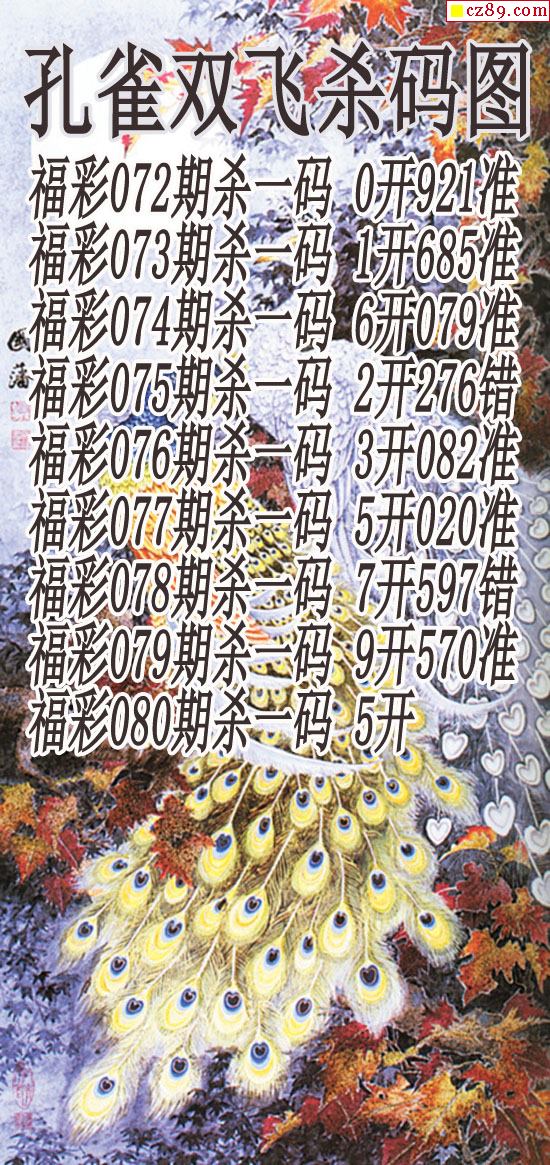 cz89.com
孔雀双飞杀码图
福彩072期杀一码 0开921准
福彩073期杀一码 1开685准
福彩074期杀一码 6开079准
福彩075期杀一码 2开276错
福彩076期杀一码 3开082准
福彩077期杀一码 5开020准
福彩078期杀一码 7开597错
福彩079期杀一码 9开570准
福彩080期杀一码 5开